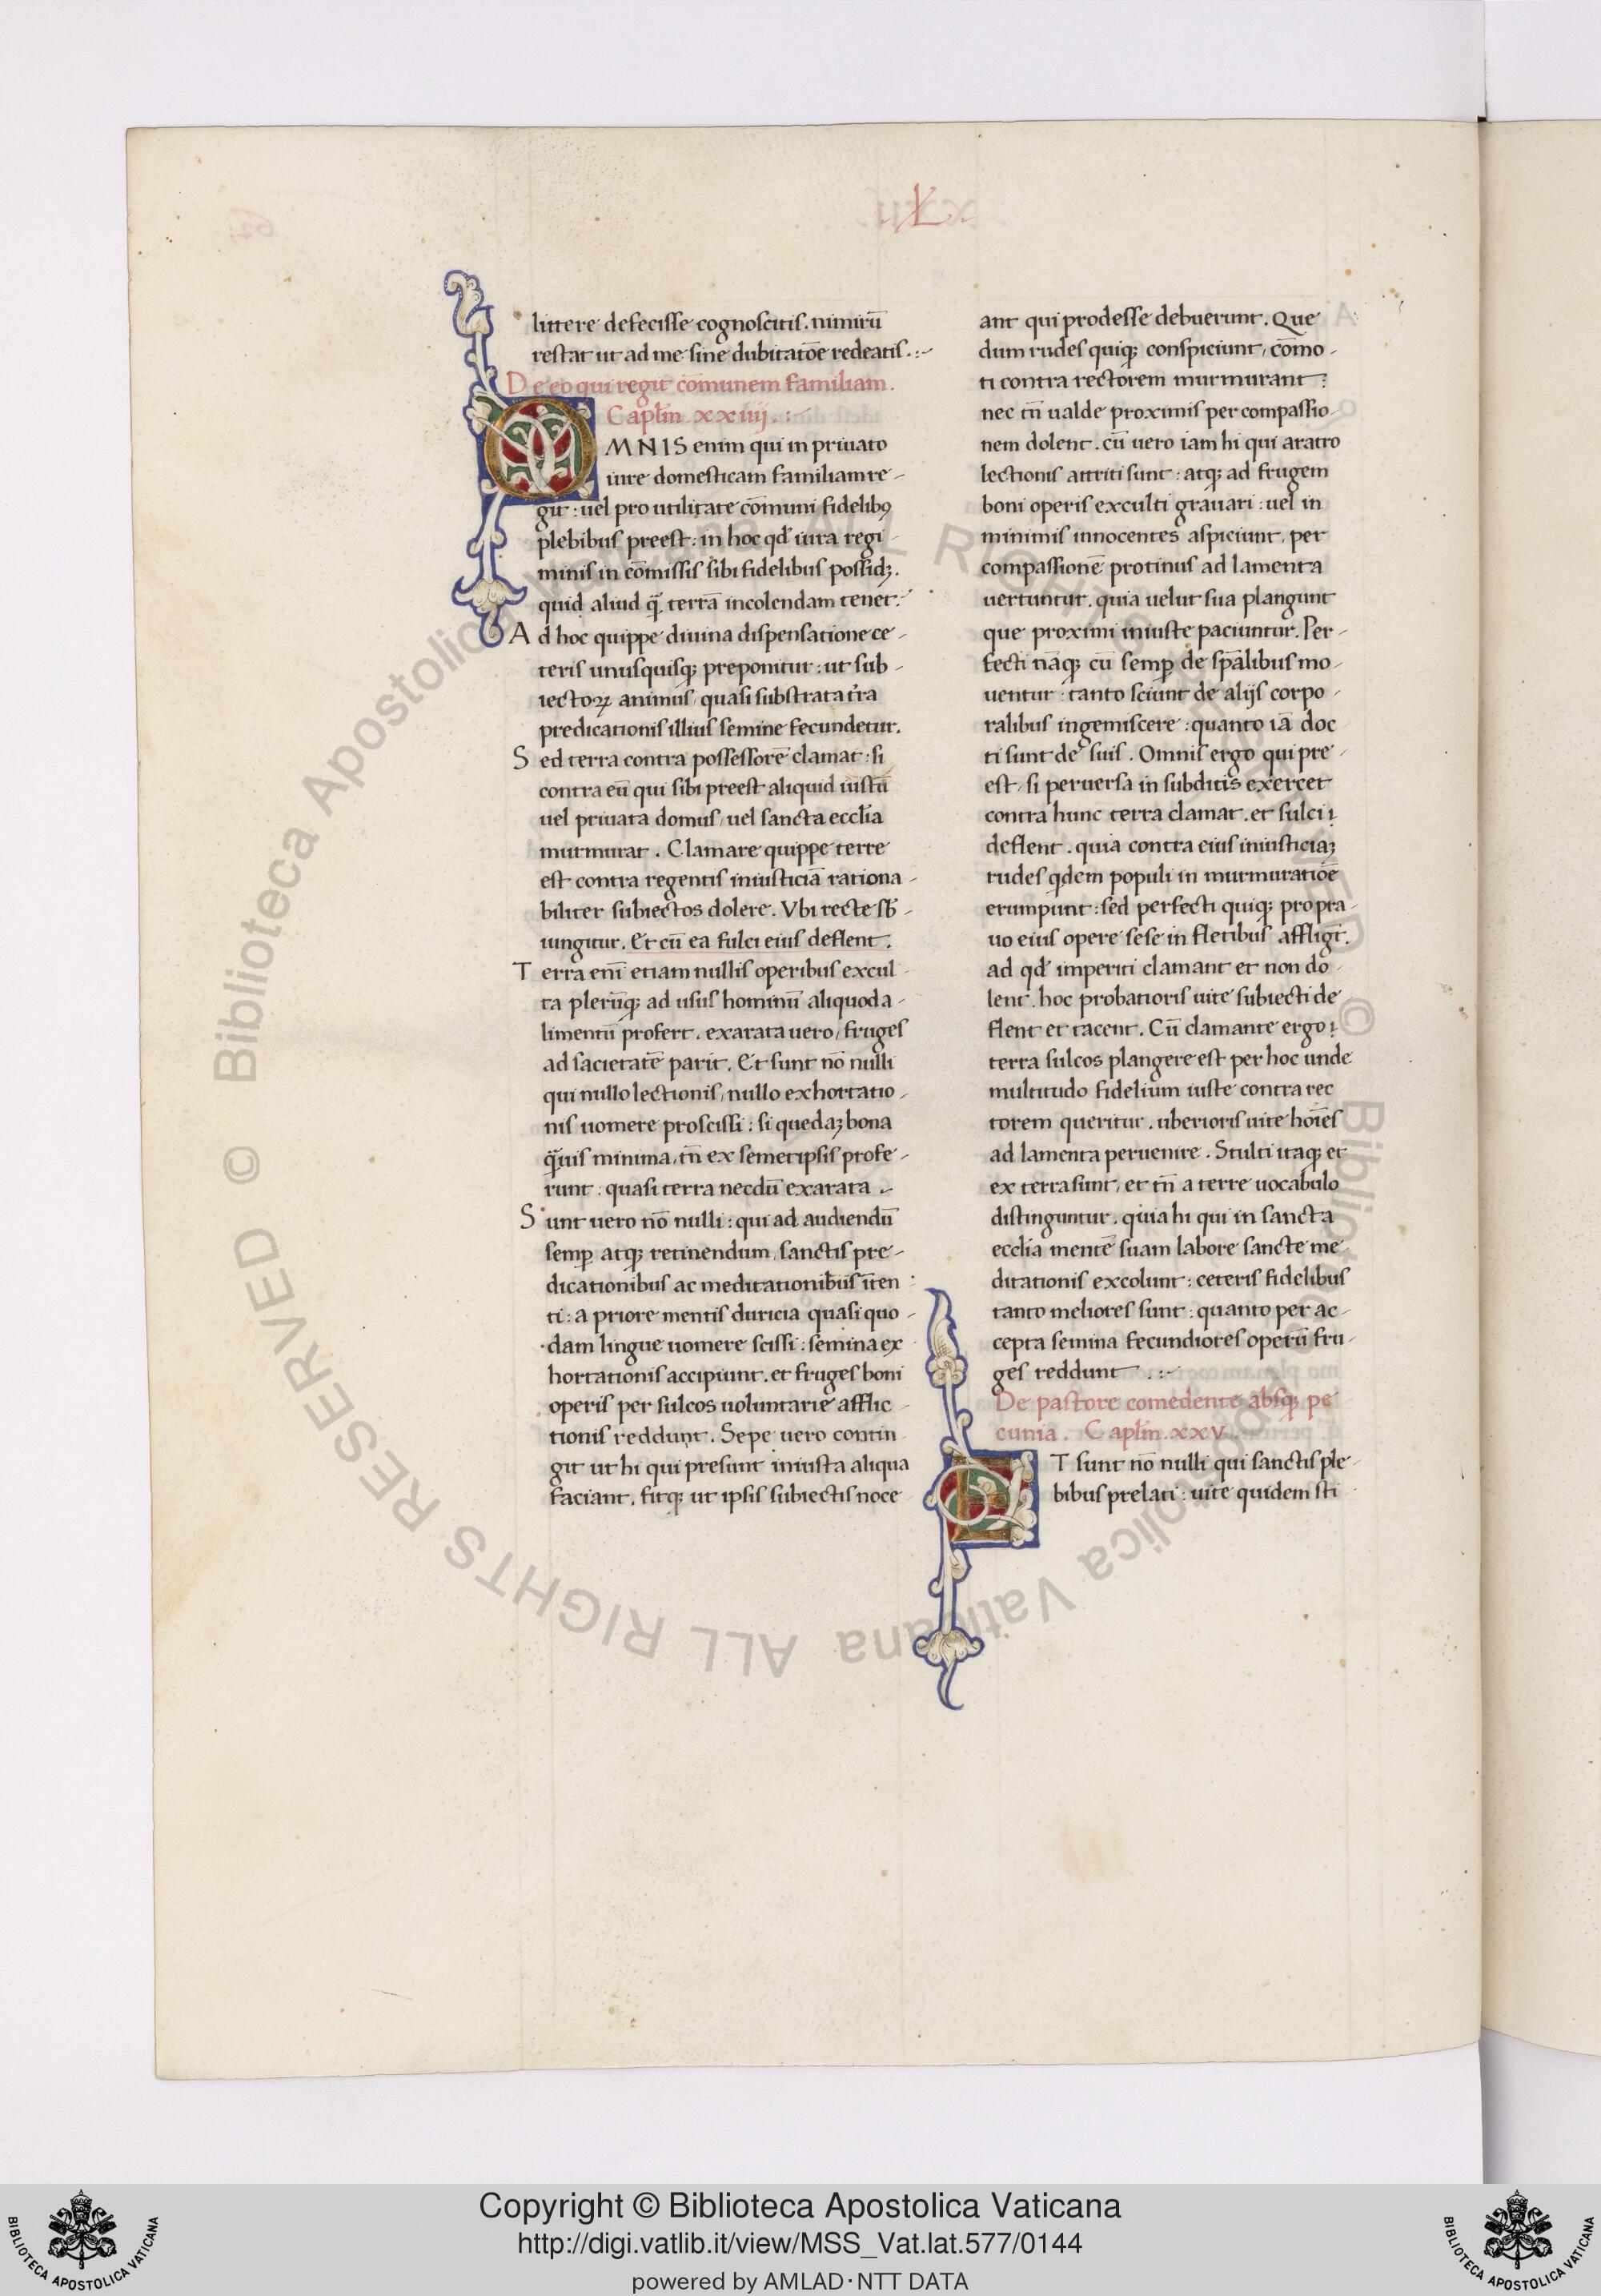 L
littere defecisse cognoscitis. nimirū
restat ut ad me sine dubitatōe redeatis.:~
De eo qui regit cōmunem familiam.
Capl̄m xxiiij.:~
OMNIS enim qui in priuato
iure domesticam familiam re-
git: uel pro utilitate cōmuni fidelibꝰ
plebibus preest: in hoc qđ iura regi-
minis in cōmissis sibi fidelibus possidꝫ.
quid aliud q̄ terrā incolendam tenet.
Ad hoc quippe diuina dispensatione ce-
teris unusquisqꝫ preponitur: ut sub-
iectoꝝ animus, quasi substrata t̄ra
predicationis illius semine fecundetur.
Sed terra contra possessorē clamat: si
contra eū qui sibi preest aliquid iustū
uel priuata domus, uel sancta eccl̄ia
murmurat. Clamare quippe terre
est contra regentis iniusticiā rationa-
biliter subiectos dolere. Vbi recte sb̄-
iungitur. Et cū ea sulci eius deflent.
Terra enī etiam nullis operibus excul-
ta plerūqꝫ ad usus hominū aliquod a-
limentū profert. exarata uero, fruges
ad sacietatē parit. Et sunt nō nulli
qui nullo lectionis, nullo exhortatio-
nis uomere proscissi: si quedaꝫ bona
q̄uis minima, tn̄ ex semetipsis profe-
runt: quasi terra necdū exarata.-
Sunt uero nō nulli: qui ad audiendū
semꝑ atqꝫ retinendum, sanctis pre-
dicationibus ac meditationibus ītēn
ti: a priore mentis duricia quasi quo-
dam lingue uomere scissi: semina ex
hortationis accipiunt. et fruges boni
operis per sulcos uoluntarie afflic-
tionis reddunt. Sepe uero contin
git ut hi qui presunt iniusta aliqua
faciant. fitqꝫ ut ipsis subiectis noce
ant qui prodesse debuerunt. Que
dum rudes quiqꝫ conspiciunt, cōmo-
ti contra rectorem murmurant:
nec tn̄ ualde proximis per compassio-
nem dolent. cū uero iam hi qui aratro
lectionis attriti sunt: atqꝫ ad frugem
boni operis exculti grauari: uel in
minimis innocentes aspiciunt, per
compassionē protinus ad lamenta
uertuntur. quia uelut sua plangunt
que proximi iniuste paciuntur. Per-
fecti nāqꝫ cū semꝑ de sp̄alibus mo-
uentur: tanto sciunt de alijs corpo-
ralibus ingemiscere: quanto iā doc
ti sunt de suis. Omnis ergo qui pre-
est, si peruersa in subditis exercet
contra hunc terra clamat. et sulci
deflent. quia contra eius iniusticiaꝫ
rudes qdem populi in murmuratiōē
erumpunt: sed perfecti quiqꝫ pro pra-
uo eius opere sese in fletibus affligt̄.
ad qđ imperiti clamant et non do-
lent. hoc probatioris uite subiecti de
flent et tacent. Cū clamante ergo
terra sulcos plangere est per hoc unde
multitudo fidelium iuste contra rec
torem queritur. uberioris uite hoīes
ad lamenta peruenire. Sulci itaqꝫ et
ex terra sunt, et tn̄ a terre uocabulo
distinguntur. quia hi qui in sancta
eccl̄ia mentē suam labore sancte me
ditationis excolunt: ceteris fidelibus
tanto meliores sunt: quanto per ac-
cepta semina fecundiores operū fru-
ges reddunt .:~
De pastore comedente absqꝫ pe
cunia. Capl̄m.xxv.
ET sunt nō nulli qui sanctis ple-
bibus prelati: uite quidem sti
© Biblioteca Apostolica Vaticana ALL RIGHTS RESERVED
Copyright © Biblioteca Apostolica Vaticana
http://digi.vatlib.it/view/MSS_Vat.lat.577/0144
powered by AMLAD·NTT DATA
BIBLIOTECA APOSTOLICA VATICANA
BIBLIOTECA APOSTOLICA VATICANA